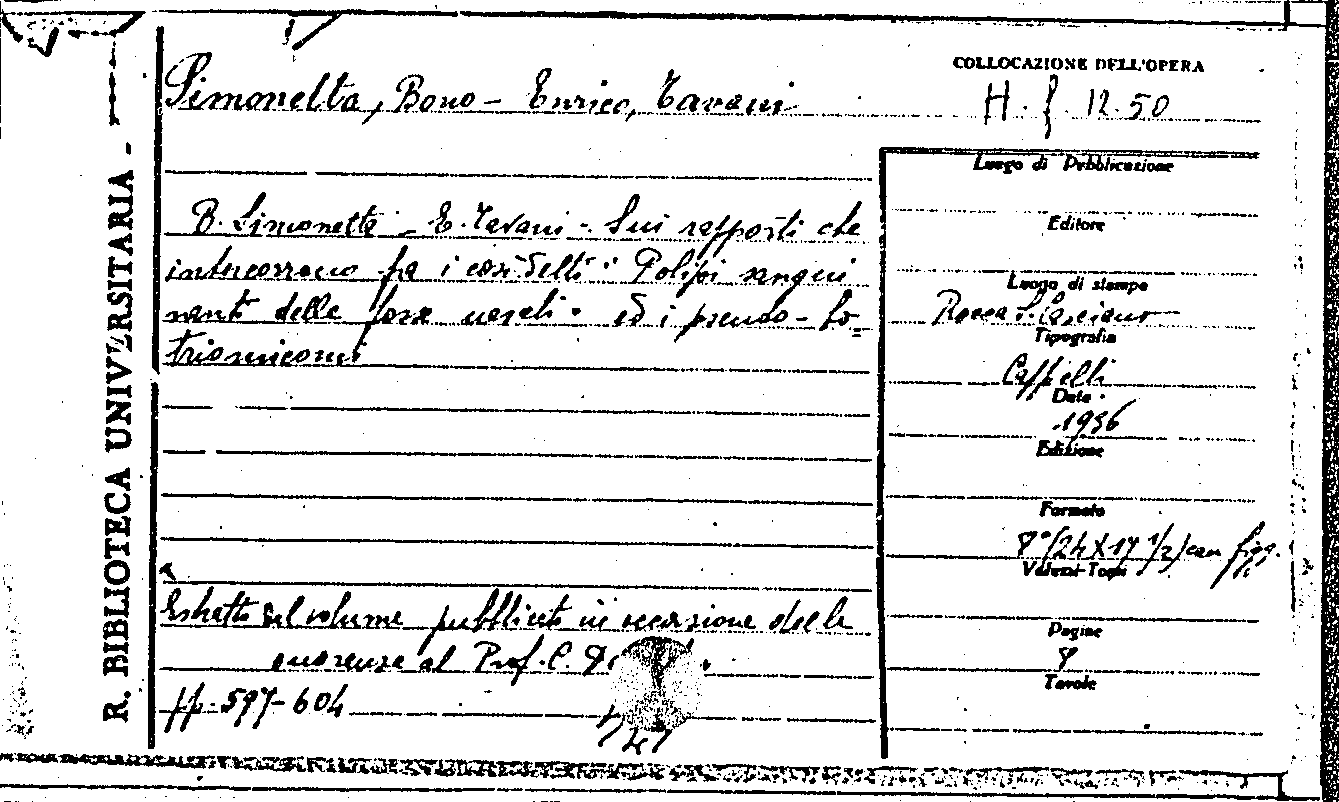 R. BIBLIOTECA UNIVERSITARIA -
Simonetta, Bono - Enrico, Tavani
COLLOCAZIONE DELL'OPERA
H. f. 12.50
B. Simonetta - E. Tavani - Sui rapporti che
intercorrono fra i così detti "Polipi sangui
nanti delle fosse nasali" ed i pseudo-bo=
triomicomi
Luogo di Pubblicazione
Editore
Luogo di stampa
Rocca S. Casciano
Tipografia
Cappelli
Data
1936
Edizione
Formato
8° (24 X 17 1/2) con figg.
Volumi-Tomi
Pagine
8
Tavole
Estratto dal volume pubblicato in occasione delle
onoranze al Prof. C.
pp. 597-604